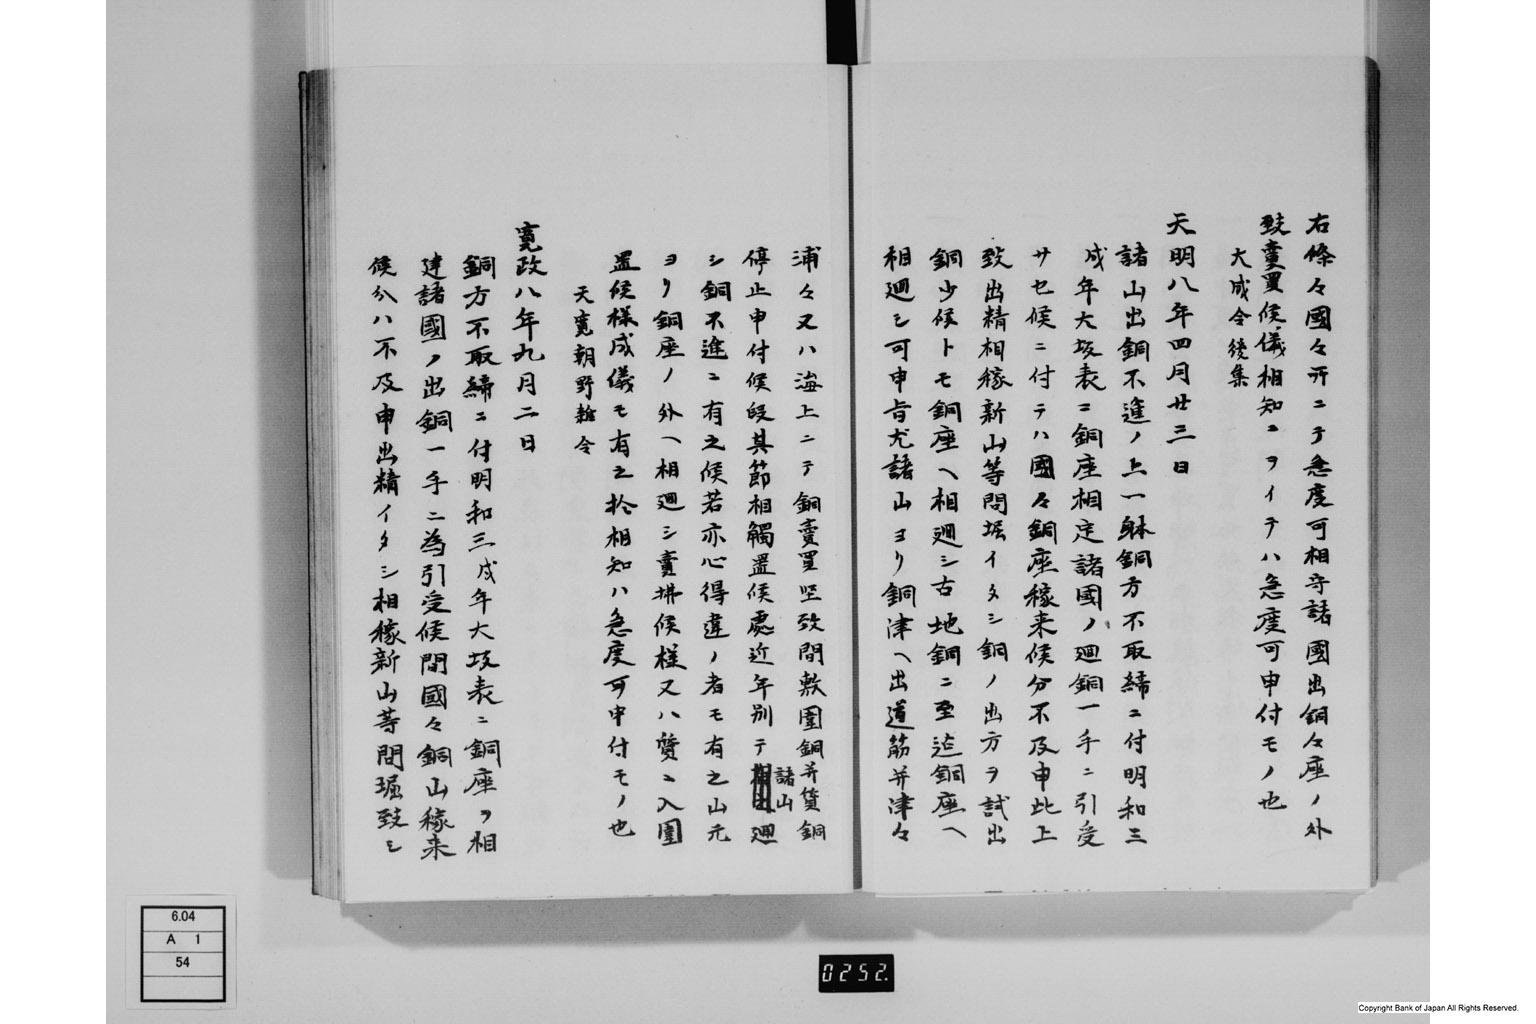 右條々國々所ニテ急度可相守諸國出銅々座ノ外
致賣買候儀相知ニヲイテハ急度可申付モノ也
大成令後集
天明八年四月廿三日
諸山出銅不進ノ上一躰銅方不取締ニ付明和三
戌年大坂表ニ銅座相定諸國ノ廻銅一手ニ引受
サセ候ニ付テハ國々銅座稼来候分不及申此上
致出精相稼新山等問堀イタシ銅ノ出方ヲ試出
銅少候トモ銅座ヘ相廻シ古地銅ニ至迄銅座ヘ
相廻シ可申旨尤諸山ヨリ銅津ヘ出道筋并津々
浦々又ハ海上ニテ銅賣買堅致間敷圍銅并質銅
停止申付候段其節相觸置候處近年別テ諸山廻
シ銅不進ニ有之候若亦心得違ノ者モ有之山元
ヨリ銅座ノ外ヘ相廻シ賣拂候様又ハ質ニ入圍
置候様成儀モ有之於相知ハ急度可申付モノ也
天寛朝野雜令
寛政八年九月二日
銅方不取締ニ付明和三戌年大坂表ニ銅座ヲ相
建諸國ノ出銅一手ニ為引受候間國々銅山稼来
候分ハ不及申出精イタシ相稼新山等問堀致シ
6.04
A 1
54
0252.
Copyright Bank of Japan All Rights Reserved.